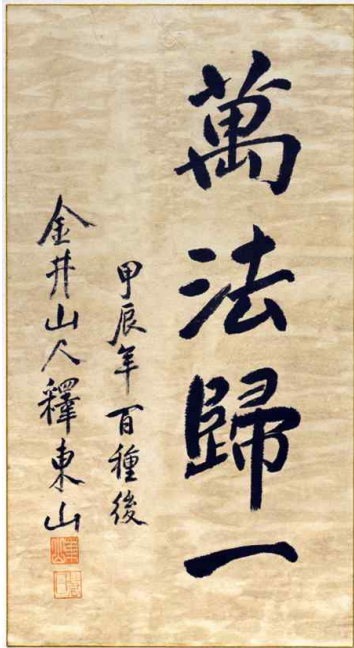 萬法歸一
甲辰年百種後
金井山人釋東山